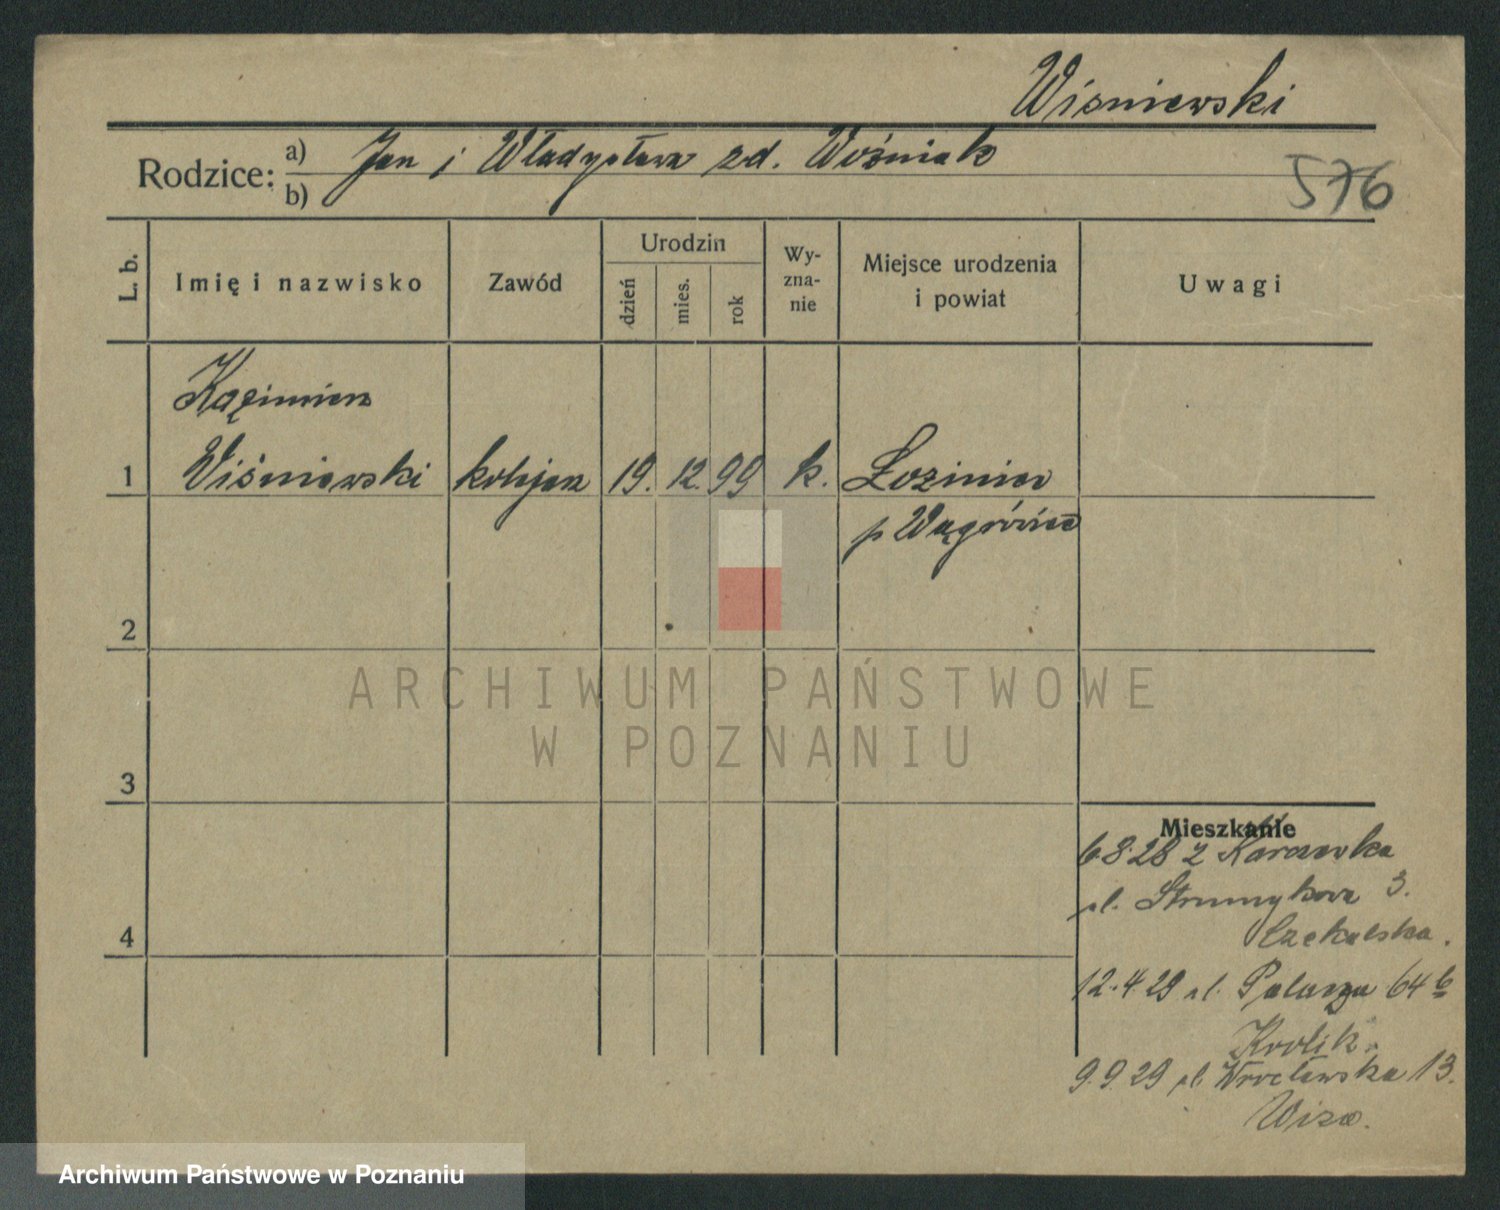 Wiśniewski
Rodzice: a) Jan i Władysława zd. Woźniak
b)
576
L. b.
Imię i nazwisko
Zawód
Urodzin
dzień
mies.
rok
Wy-
zna-
nie
Miejsce urodzenia
i powiat
Uwagi
Kazimierz
1 Wiśniewski kolejarz 19. 12. 99 k. Łoziniec
p Wągrówiec
2
ARCHIWUM PAŃSTWOWE
W POZNANIU
3
Mieszkanie
6.8.28 z Karczewka
ul. Strumykowa 3.
Czekalska.
12.4.29 ul. Palacza 64 b
Krolik.
9.9.29 ul. Wrocławska 13.
Wiza.
4
Archiwum Państwowe w Poznaniu